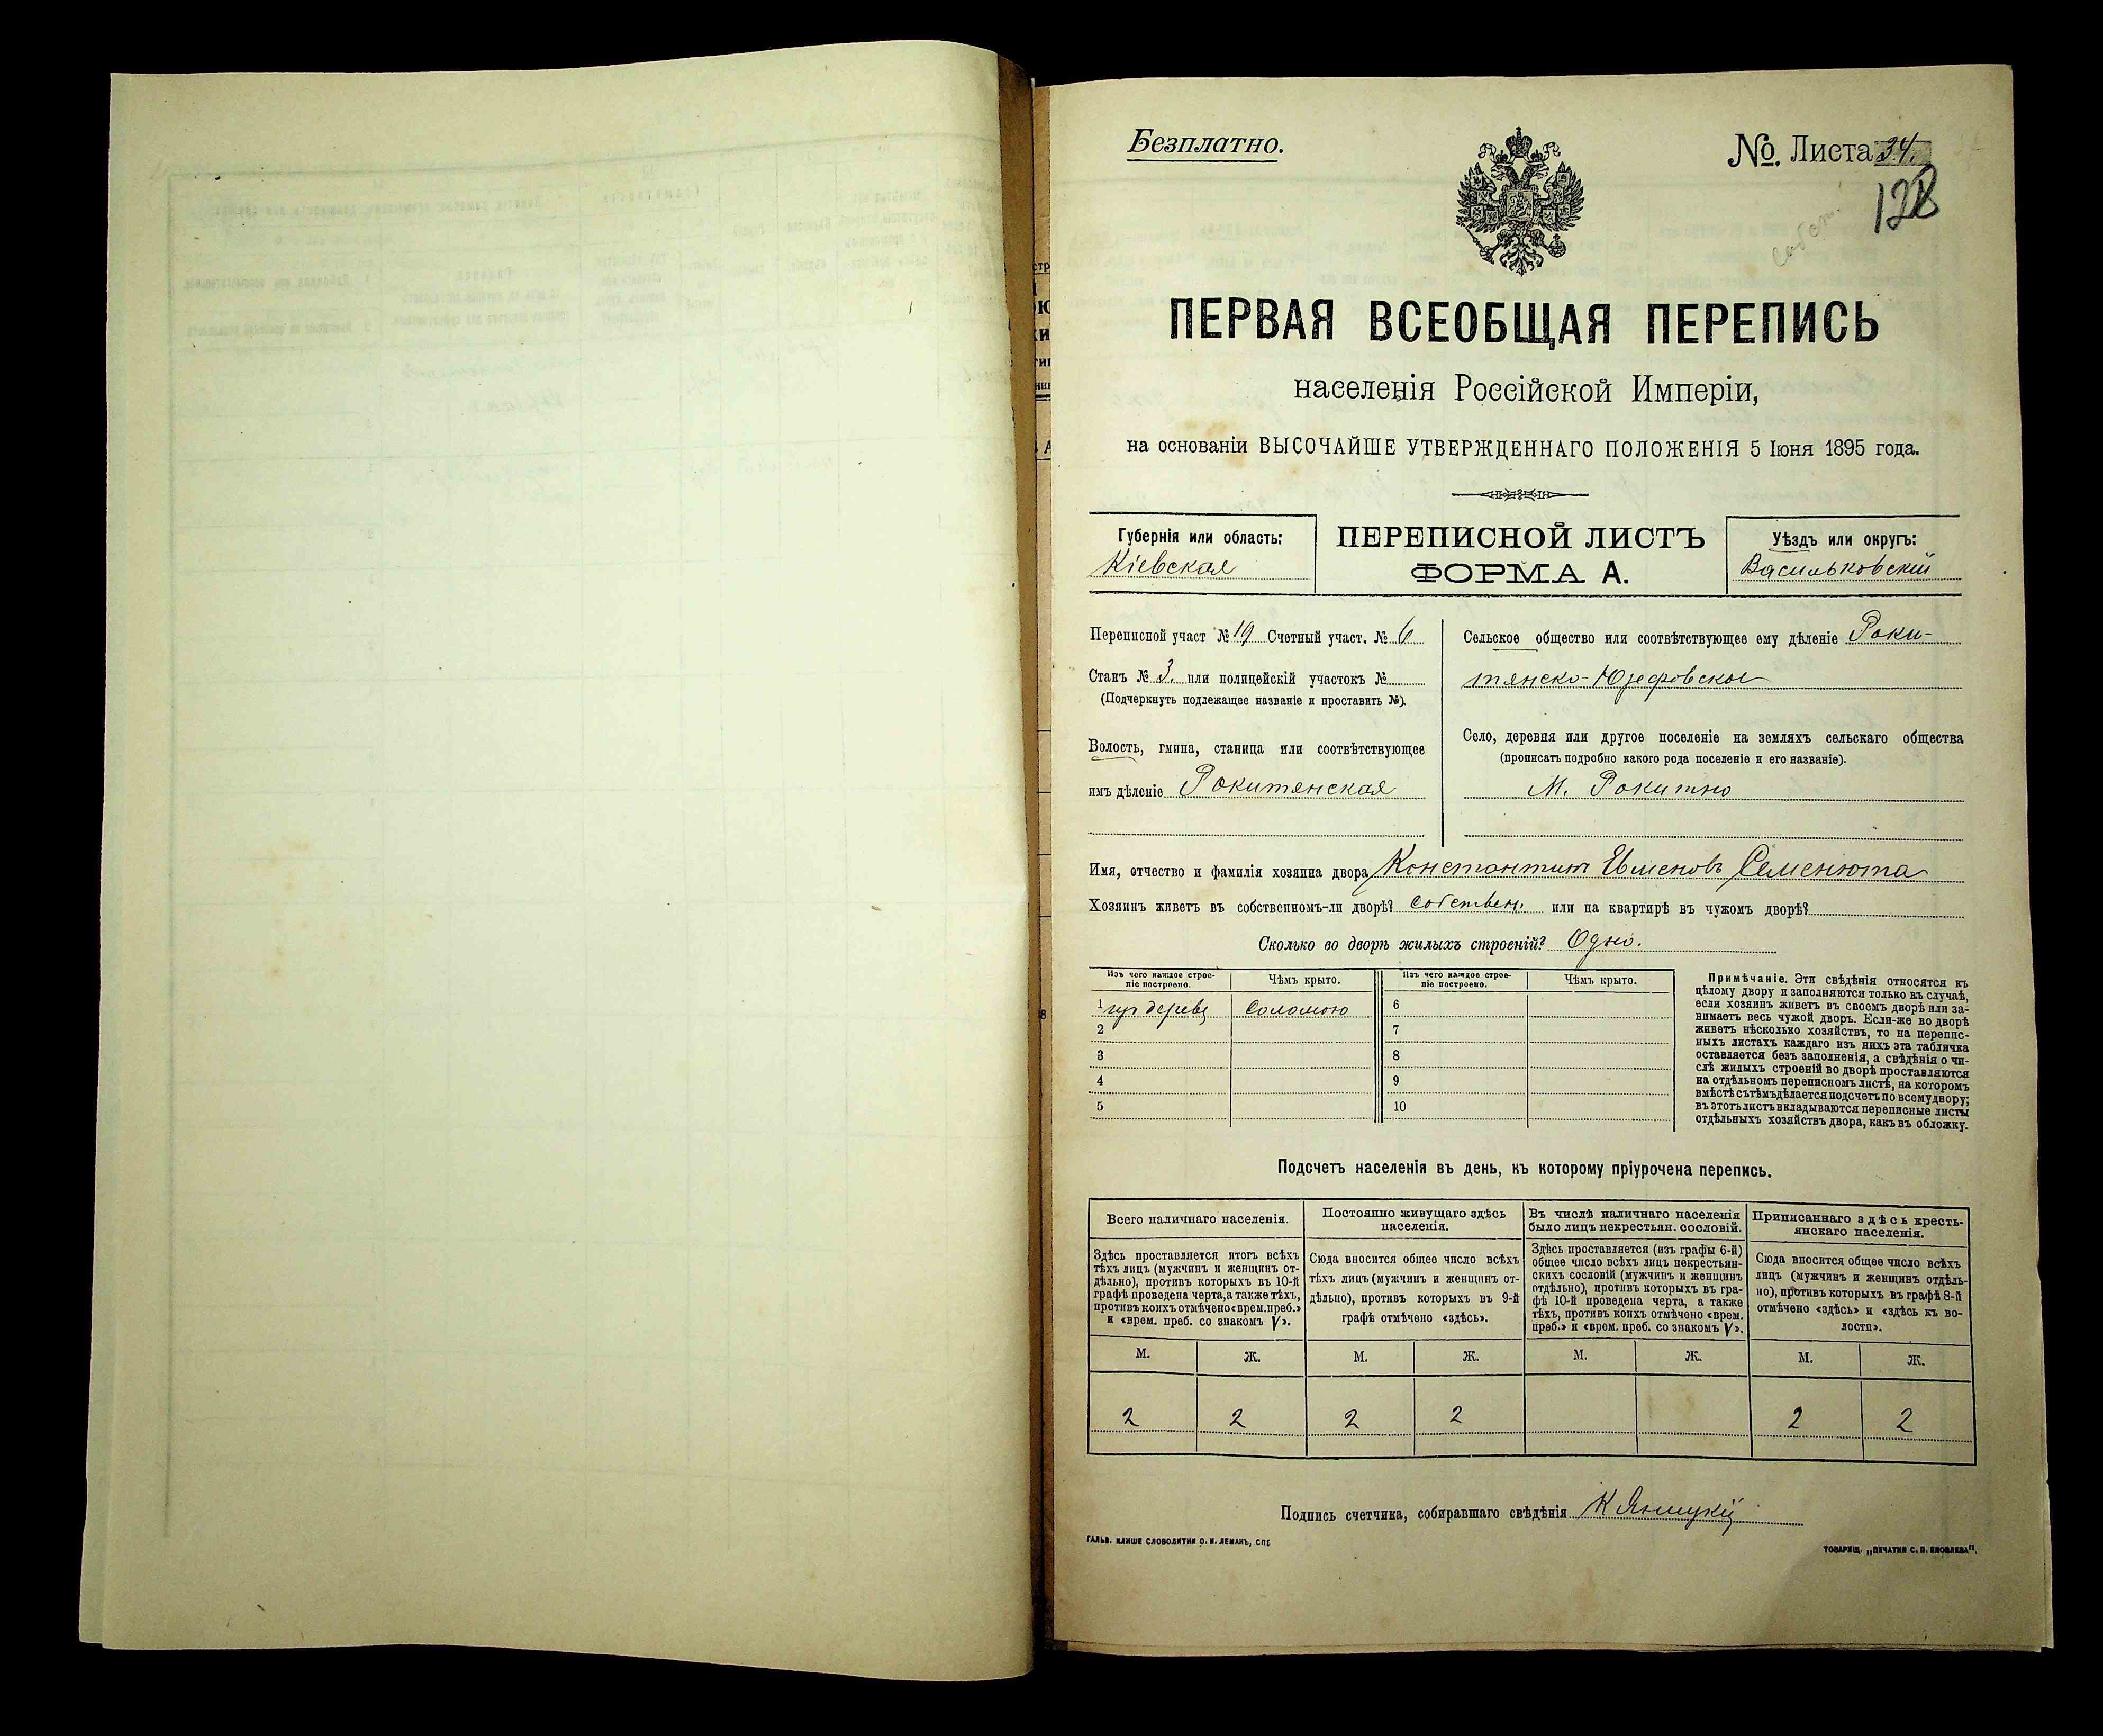 Безплатно.
№. Листа 34.
128
ПЕРВАЯ ВСЕОБЩАЯ ПЕРЕПИСЬ
населенія Россійской Имперіи,
на основаніи ВЫСОЧАЙШЕ УТВЕРЖДЕННАГО ПОЛОЖЕНІЯ 5 Іюня 1895 года.
Губернія или область:
Кіевская
ПЕРЕПИСНОЙ ЛИСТЪ
ФОРМА А.
Уѣздъ или округъ:
Васильковскій
Переписной участ № 19 Счетный участ. № 6
Станъ № 3. или полицейскій участокъ №
(Подчеркнуть подлежащее названіе и проставить №).
Волость, гмина, станица или соотвѣтствующее
имъ дѣленіе Рокитянская
Сельское общество или соотвѣтствующее ему дѣленіе Роки-
тянско-Юзефовское
Село, деревня или другое поселеніе на земляхъ сельскаго общества
(прописать подробно какого рода поселеніе и его названіе).
М. Рокитно
Имя, отчество и фамилія хозяина двора Константинъ Евменовъ Семенюта
Хозяинъ живетъ въ собственномъ-ли дворѣ? собствен. или на квартирѣ въ чужомъ дворѣ?
Сколько во дворѣ жилыхъ строеній? Одно.
Изъ чего каждое строе-
ніе построено.
Чѣмъ крыто.
Изъ чего каждое строе-
ніе построено.
Чѣмъ крыто.
1 дерева Соломою 6
2 7
3 8
4 9
5 10
Примѣчаніе. Эти свѣдѣнія относятся къ
цѣлому двору и заполняются только въ случаѣ,
если хозяинъ живетъ въ своемъ дворѣ или за-
нимаетъ весь чужой дворъ. Если-же во дворѣ
живетъ нѣсколько хозяйствъ, то на перепис-
ныхъ листахъ каждаго изъ нихъ эта табличка
оставляется безъ заполненія, а свѣдѣнія о чи-
слѣ жилыхъ строеній во дворѣ проставляются
на отдѣльномъ переписномъ листѣ, на которомъ
вмѣстѣ съ тѣмъ дѣлается подсчетъ по всему двору;
въ этотъ листъ вкладываются переписные листы
отдѣльныхъ хозяйствъ двора, какъ въ обложку.
Подсчетъ населенія въ день, къ которому пріурочена перепись.
Всего наличнаго населенія.
Здѣсь проставляется итогъ всѣхъ
тѣхъ лицъ (мужчинъ и женщинъ от-
дѣльно), противъ которыхъ въ 10-й
графѣ проведена черта, а также тѣхъ,
противъ коихъ отмѣчено «врем. преб.»
и «врем. преб. со знакомъ V».
Постоянно живущаго здѣсь
населенія.
Сюда вносится общее число всѣхъ
тѣхъ лицъ (мужчинъ и женщинъ от-
дѣльно), противъ которыхъ въ 9-й
графѣ отмѣчено «здѣсь».
Въ числѣ наличнаго населенія
было лицъ некрестьян. сословій.
Здѣсь проставляется (изъ графы 6-й)
общее число всѣхъ лицъ некрестьян-
скихъ сословій (мужчинъ и женщинъ
отдѣльно), противъ которыхъ въ гра-
фѣ 10-й проведена черта, а также
тѣхъ, противъ коихъ отмѣчено «врем.
преб.» и «врем. преб. со знакомъ V».
Приписаннаго здѣсь кресть-
янскаго населенія.
Сюда вносится общее число всѣхъ
лицъ (мужчинъ и женщинъ отдѣль-
но), противъ которыхъ въ графѣ 8-й
отмѣчено «здѣсь» и «здѣсь къ во-
лости».
М. Ж. М. Ж. М. Ж. М. Ж.
2 2 2 2 2 2
Подпись счетчика, собиравшаго свѣдѣнія К Яницкій
ГАЛЬВ. КЛИШЕ СЛОВОЛИТНИ О. И. ЛЕМАНЪ, СПБ
ТОВАРИЩ. „ПЕЧАТНЯ С. П. ЯКОВЛЕВА“.